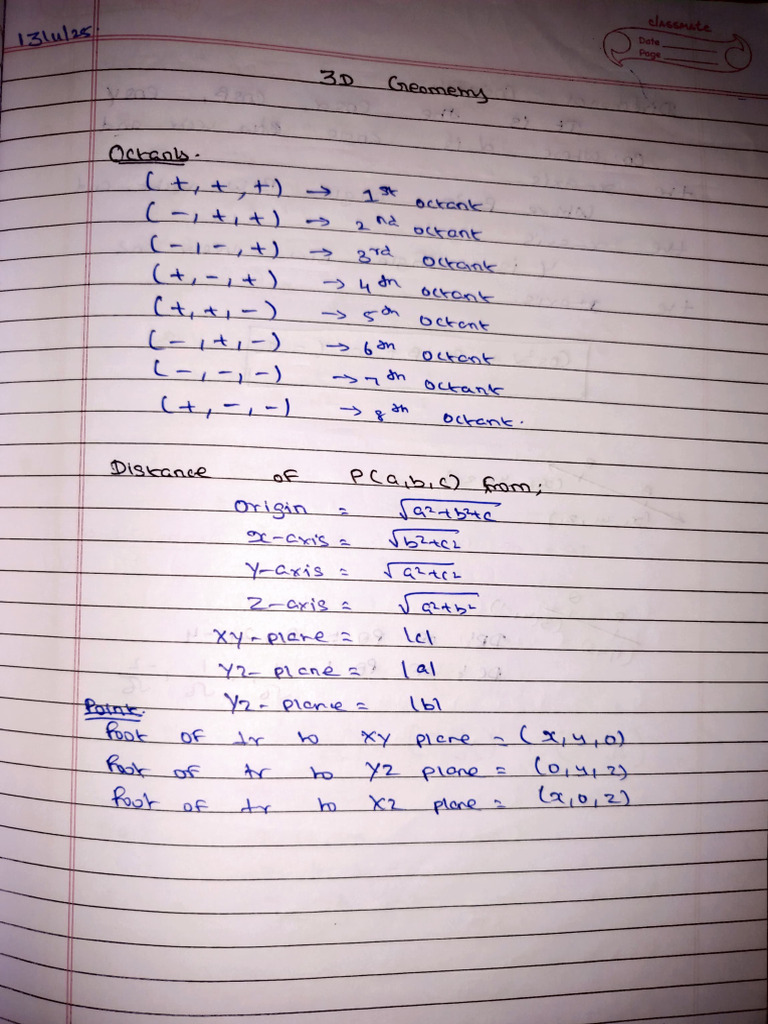 13/4/25
classmate
Date
Page
3D Geometry
Octants.
(+, +, +) → 1st octant
(-, +, +) → 2nd octant
(-, -, +) → 3rd octant
(+, -, +) → 4th octant
(+, +, -) → 5th octant
(-, +, -) → 6th octant
(-, -, -) → 7th octant
(+, -, -) → 8th octant.
Distance of P(a,b,c) from;
origin = √a²+b²+c
x-axis = √b²+c²
Y-axis = √a²+c²
Z-axis = √a²+b²
XY-plane = |c|
YZ-plane = |a|
YZ-plane = |b|
Point.
foot of ⊥r to XY plane = (x,y,0)
foot of ⊥r to YZ plane = (0,y,z)
foot of ⊥r to XZ plane = (x,0,z)